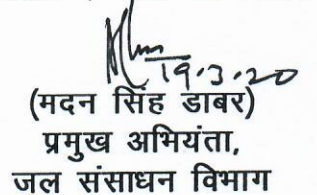 19.3.20
(मदन सिंह डाबर)
प्रमुख अभियंता,
जल संसाधन विभाग